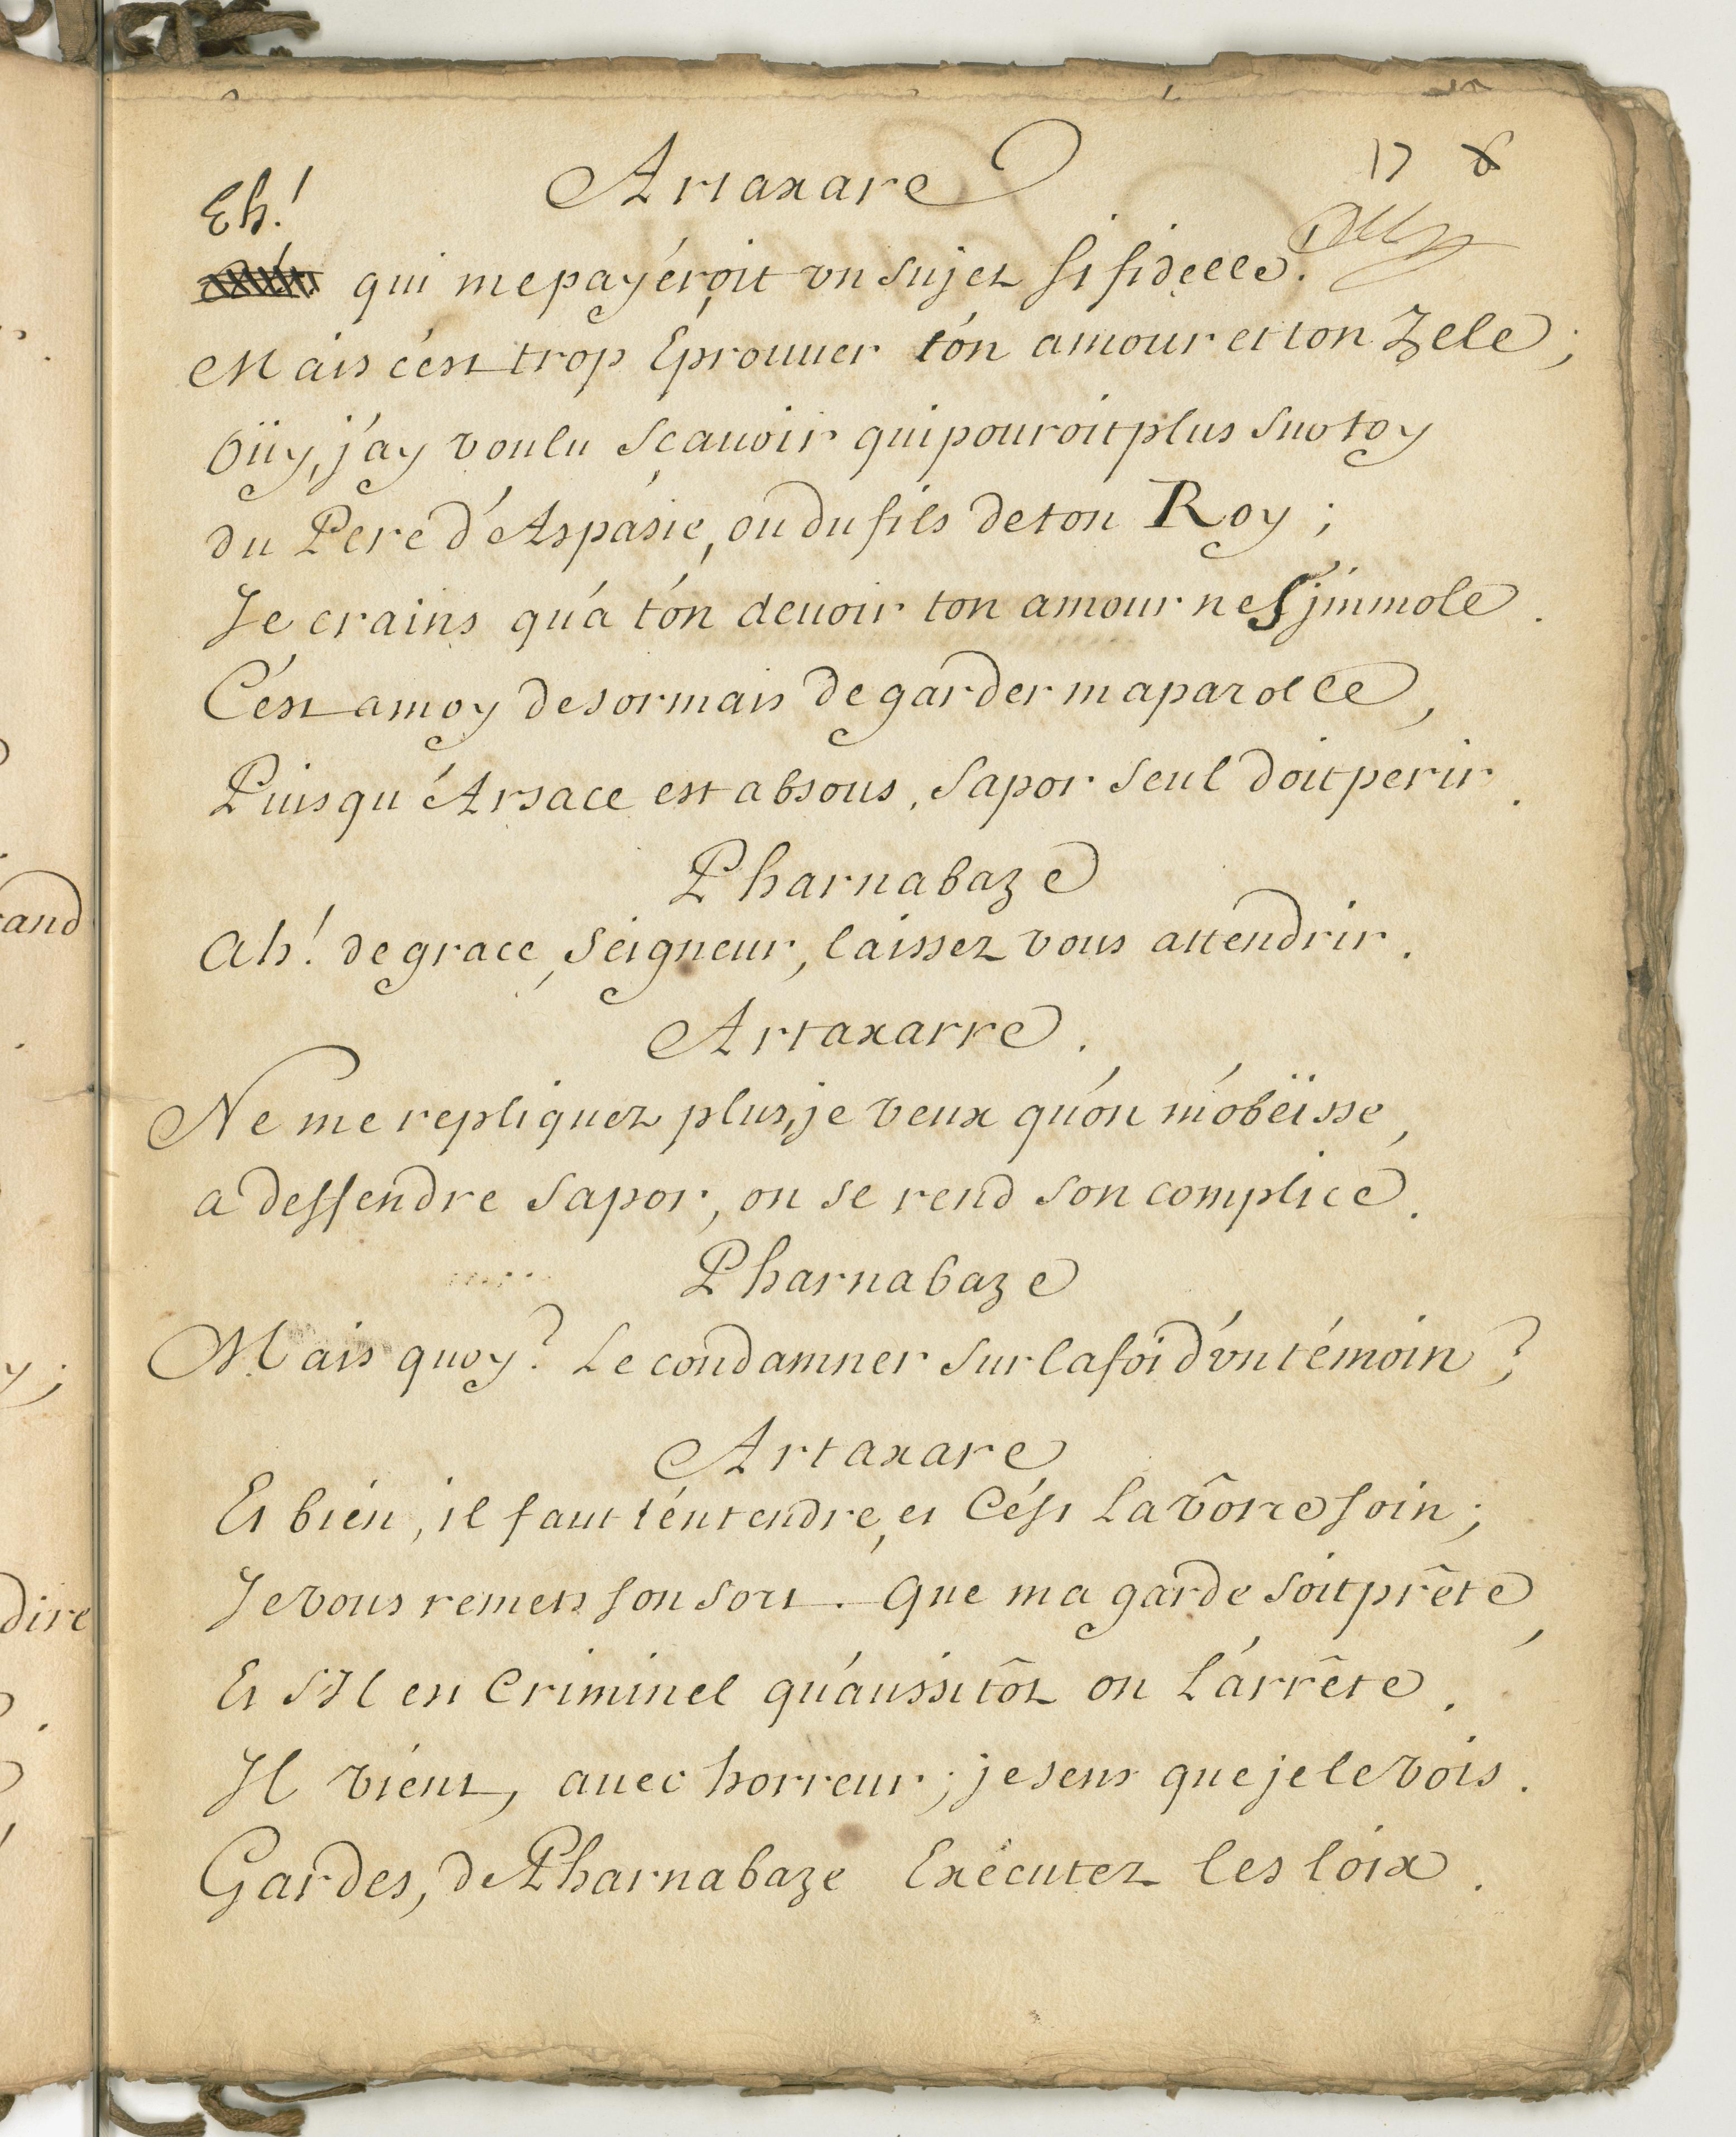 17 8
Artaxare
Eh!
qui me payéroit vn sujet si fidelle.
Mais c'est trop Eprouuer t'on amour et ton Zele;
Oüy, j'ay voulu scauoir qui pouroit plus sur toy
du Pere d'Aspasie, ou du fils de ton Roy;
Je crains qu'a t'on deuoir ton amour ne S'jmmole.
C'est a moy desormais de garder ma parolle,
Puisqu'Arsace est absous, Sapor seul doit perir.
Pharnabaze
Ah! de grace, Seigneur, laissez vous attendrir.
Artaxarre.
Ne me repliquez plus, je veux qu'on m'obëisse,
a deffendre Sapor, on se rend son complice.
Pharnabaze
Mais quoy? Le condamner sur la foi d'vn témoin?
Artaxare
Et bien, il faut l'entendre, et C'est La vôtre soin;
Je vous remets son sort. Que ma garde soit prête,
Et S'Il est Criminel qu'aussitôt on L'arrête.
Il vient, auec horreur; je sens que je le vois.
Gardes, de Pharnabaze Exécutez les loix.
and
y;
dire